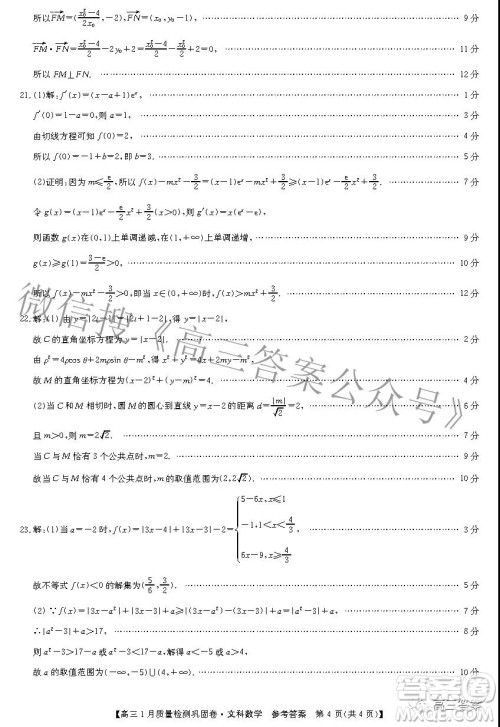 所以FM=(x₀²-4/2x₀,-2),FN=(x₀,y₀-1), 9分
FM·FN=x₀²-4/2-2y₀+2=x₀²-4/2-x₀²/2+2=0, 11分
所以FM⊥FN. 12分
21.(1)解:f′(x)=(x-a+1)eˣ, 1分
f′(0)=1-a=0,则a=1, 3分
由切线方程可知f(0)=2, 4分
所以f(0)=-1+b=2,即b=3. 5分
(2)证明:因为m≤e/2,所以f(x)-mx²-3/2=(x-1)eˣ-mx²+3/2≥(x-1)eˣ-e/2x²+3/2. 7分
令g(x)=(x-1)eˣ-e/2x²+3/2(x>0),则g′(x)=x(eˣ-e).
则函数g(x)在(0,1)上单调递减,在(1,+∞)上单调递增, 9分
g(x)≥g(1)=3-e/2>0, 10分
所以f(x)-mx²-3/2>0,即当x∈(0,+∞)时,f(x)>mx²+3/2. 12分
22.解:(1)由
故C的直角坐标方程为y=
由ρ²=4ρcosθ+2mρsinθ-m²,得x²+y²=4x+2my-m²,
故M的直角坐标方程为(x-2)²+(y-m)²=4. 4分
(2)当C和M相切时,圆M的圆心到直线y=x-2的距离d=|m|/√2=2, 6分
且m>0,则m=2√2. 7分
当C与M恰有3个公共点时,m=2. 9分
故当C与M恰有4个公共点时,m的取值范围为(2,2√2). 10分
23.解:(1)当a=-2时,f(x)=|3x-4|+|3x-3|-2={5-6x,x≤1
-1,1<x<4/3, 3分
6x-9,x≥4/3
故不等式f(x)<0的解集为(5/6,3/2). 5分
(2)∵f(x)=|3x-a²|+|3x-3|+a≥|(3x-a²)-(3x-3)|+a=|a²-3|+a, 6分
∴|a²-3|+a>17, 8分
则a²-3>17-a或a²-3<a-17,解得a<-5或a>4. 9分
故a的取值范围为(-∞,-5)∪(4,+∞). 10分
【高三1月质量检测巩固卷·文科数学 参考答案 第4页(共4页)】
微信搜《高三答案公众号》
高三答案